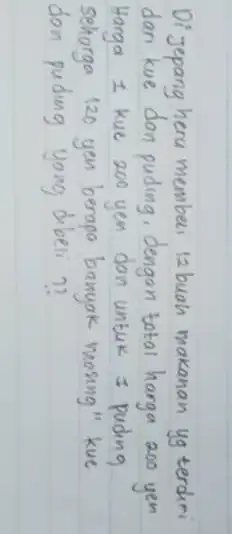 Di Jepang heru membeli 12 buah makanan yg terdiri
dari kue dan puding, dengan total harga 200 yen
Harga 1 kue 200 yen dan untuk 1 puding
seharga 120 yen berapa banyak masing" kue
dan puding yang dibeli ??